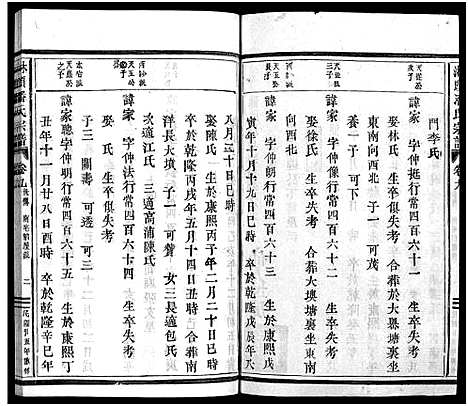 門李氏
諱家 字仲挺行常四百六十一 生卒失考
娶林氏 生卒失考 合葬於大舉塘裏坐東
南向西北 子一 可茂
諱家 字仲像行常四百六十二 生卒失考
娶 氏 生卒失考 合葬大墺塘裏坐東南
向西北
諱家 字仲朗行常四百六十三 生於康熙戊
寅年十月十九日巳時 卒於乾隆戊辰年
八月三十日巳時
娶陳氏 生於康熙丙子年二月二十日巳時
卒於乾隆丙戌年五月十四日丑時 合葬南
洋長大墳 子一 可贊 女三長適包氏
次適江氏 三適高蒲陳氏
諱家 字仲法行常四百六十四 生卒失考
娶 氏 生卒俱失考
子三 關毒 可透 可三
諱家 聰字仲明行常四百六十五 生於康熙丁
丑年十一月廿八日酉時 卒於乾隆辛巳年